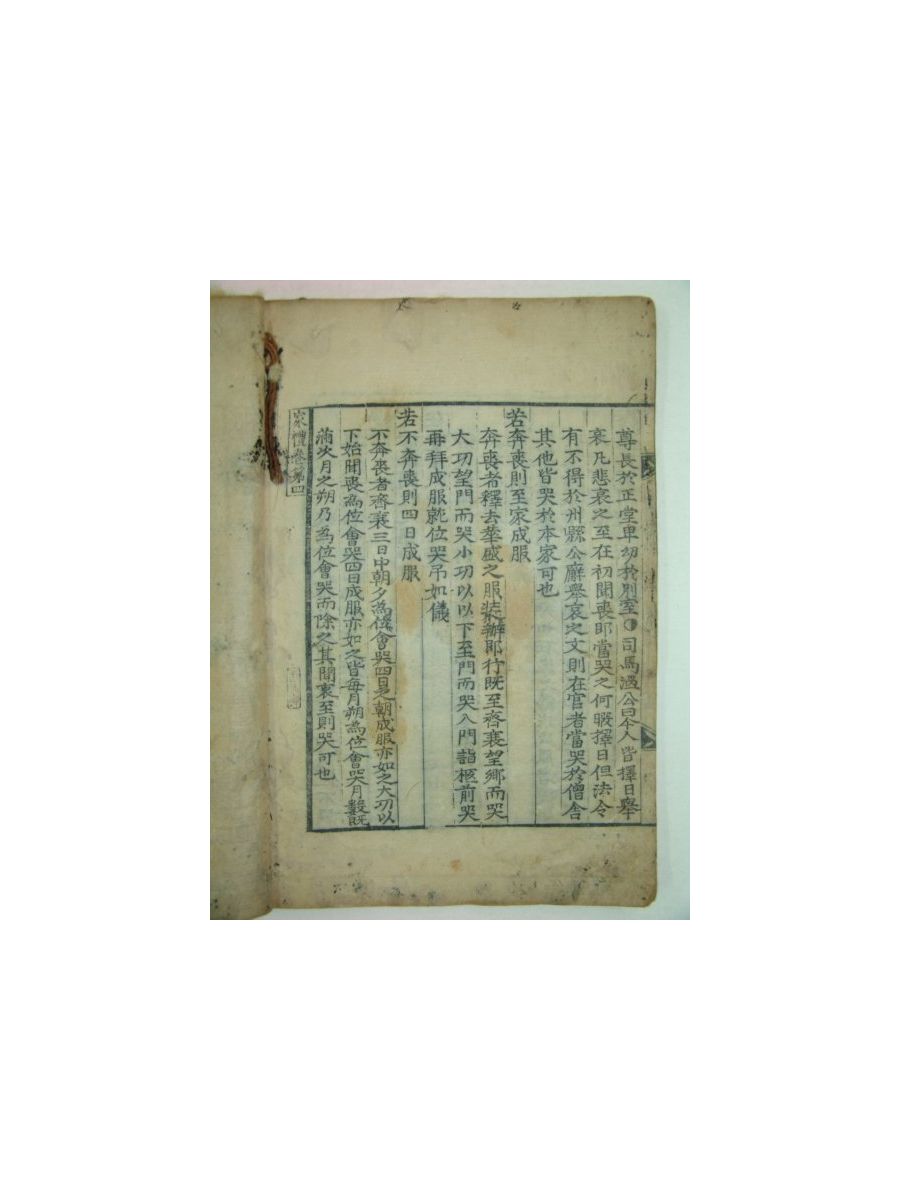 尊長於正堂卑幼於別室○司馬溫公曰今人皆擇日舉
哀凡悲哀之至在初聞喪即當哭之何暇擇日但法令
有不得於州縣公廨舉哀之文則在官者當哭於僧舍
其他皆哭於本家可也
若奔喪則至家成服
奔喪者釋去華盛之服裝辦即行既至齊衰望鄉而哭
大功望門而哭小功以以下至門而哭入門詣柩前哭
再拜成服就位哭吊如儀
若不奔喪則四日成服
不奔喪者齊衰三日中朝夕為位會哭四日之朝成服亦如之大功以
下始聞喪為位會哭四日成服亦如之皆每月朔為位會哭月數既
滿次月之朔乃為位會哭而除之其聞哀至則哭可也
家禮卷第四